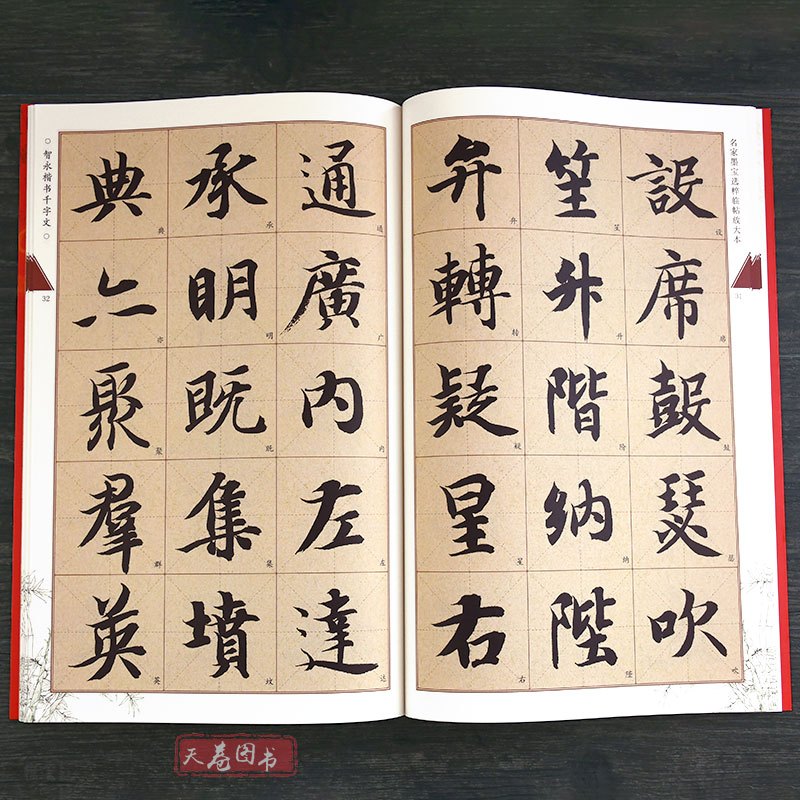 名家墨宝选粹临帖放大本
31
設席鼔瑟吹
设席鼓瑟吹
笙升階納陛
笙升阶纳陛
弁轉疑星右
弁转疑星右
通廣内左達
通广内左达
承明既集墳
承明既集坟
典亦聚羣英
典亦聚群英
○智永楷书千字文○
32
图书